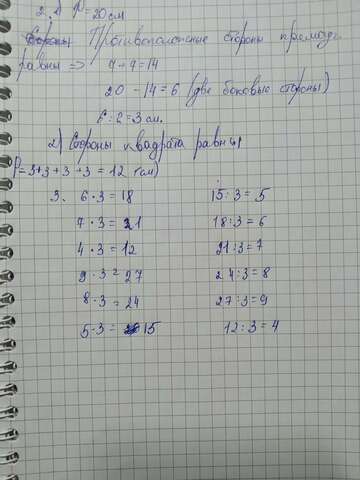 2. 1) P = 20 см
Противоположные стороны прямоуг.
равны => 7+7=14
20 - 14 = 6 (две боковые стороны)
6 : 2 = 3 см.
2) Стороны квадрата равны
P=3+3+3+3=12 (см)
3. 6·3=18 15:3=5
7·3=21 18:3=6
4·3=12 21:3=7
9·3=27 24:3=8
8·3=24 27:3=9
5·3=15 12:3=4